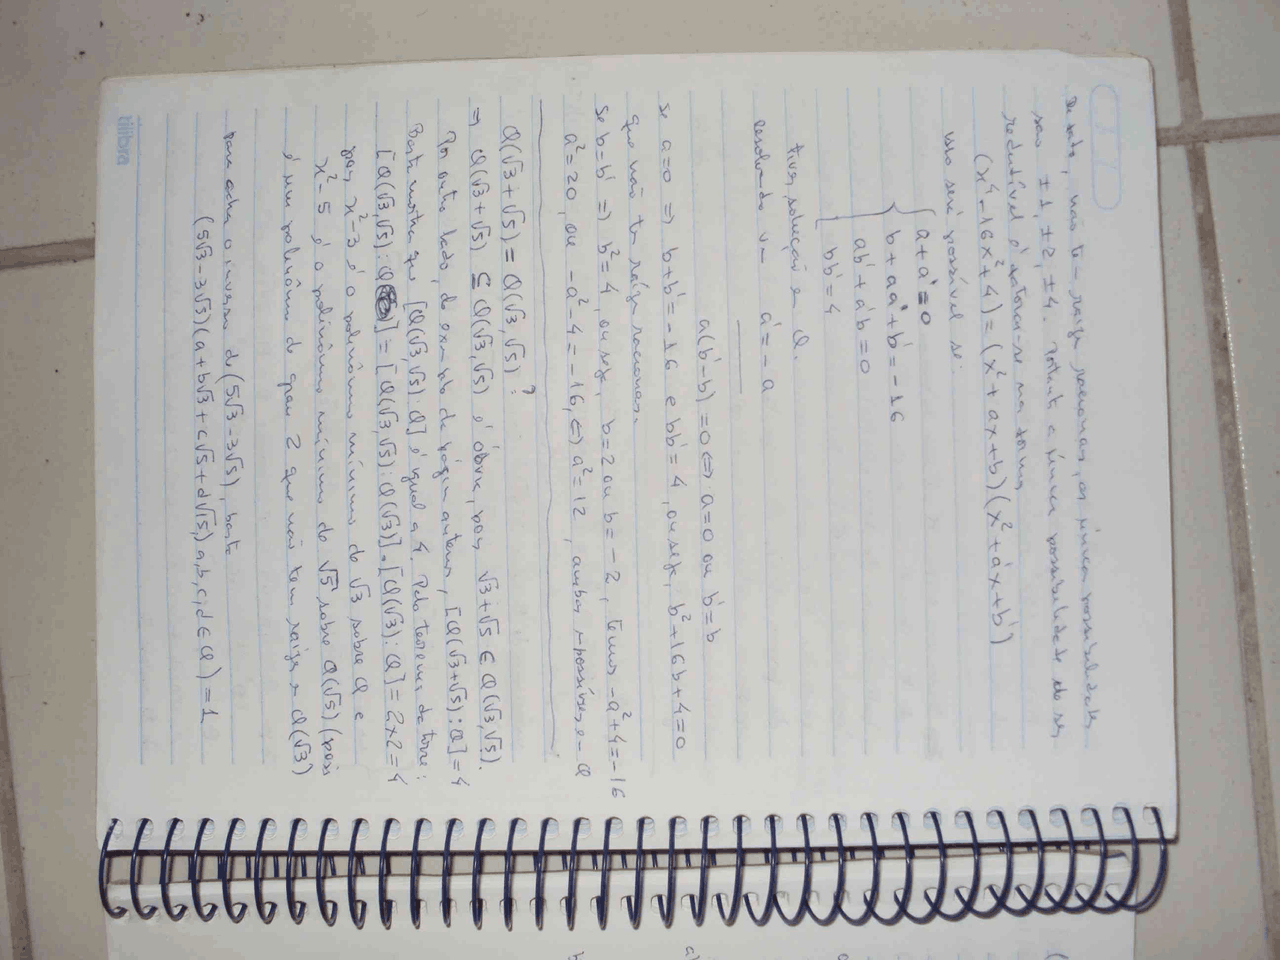 De fato, não tem raízes racionais, as únicas possibilidades
são ±1, ±2, ±4. Portanto a única possibilidade de ser
redutível é fatorar-se na forma
(x⁴-16x²+4) = (x²+ax+b)(x²+a'x+b')
isto será possível se:
a+a'=0
b+aa'+b'=-16
ab'+a'b=0
bb'=4
tiver solução em Q.
resolvendo vem a'=-a
a(b'-b)=0 ⇔ a=0 ou b'=b
se a=0 ⇒ b+b'=-16 e bb'=4, ou seja, b²+16b+4=0
que não tem raízes racionais.
Se b=b' ⇒ b²=4, ou seja, b=2 ou b=-2, temos -a²+4=-16
a²=20, ou -a²-4=-16, ⇔ a²=12, ambas impossíveis em Q
Q(√3+√5) = Q(√3,√5)?
⇒ Q(√3+√5) ⊆ Q(√3,√5) é óbvio, pois √3+√5 ∈ Q(√3,√5).
Por outro lado, do exemplo da página anterior, [Q(√3+√5):Q]=4
Basta mostrar que [Q(√3,√5):Q] é igual a 4. Pelo teorema da torre:
[Q(√3,√5):Q] = [Q(√3,√5):Q(√3)].[Q(√3):Q] = 2×2=4
pois x²-3 é o polinômio mínimo de √3 sobre Q e
x²-5 é o polinômio mínimo de √5 sobre Q(√5) (pois
é um polinômio de grau 2 que não tem raízes em Q(√3)
para achar o inverso de (5√3-3√5), basta
(5√3-3√5)(a+b√3+c√5+d√15, a,b,c,d ∈ Q) = 1
tilibra